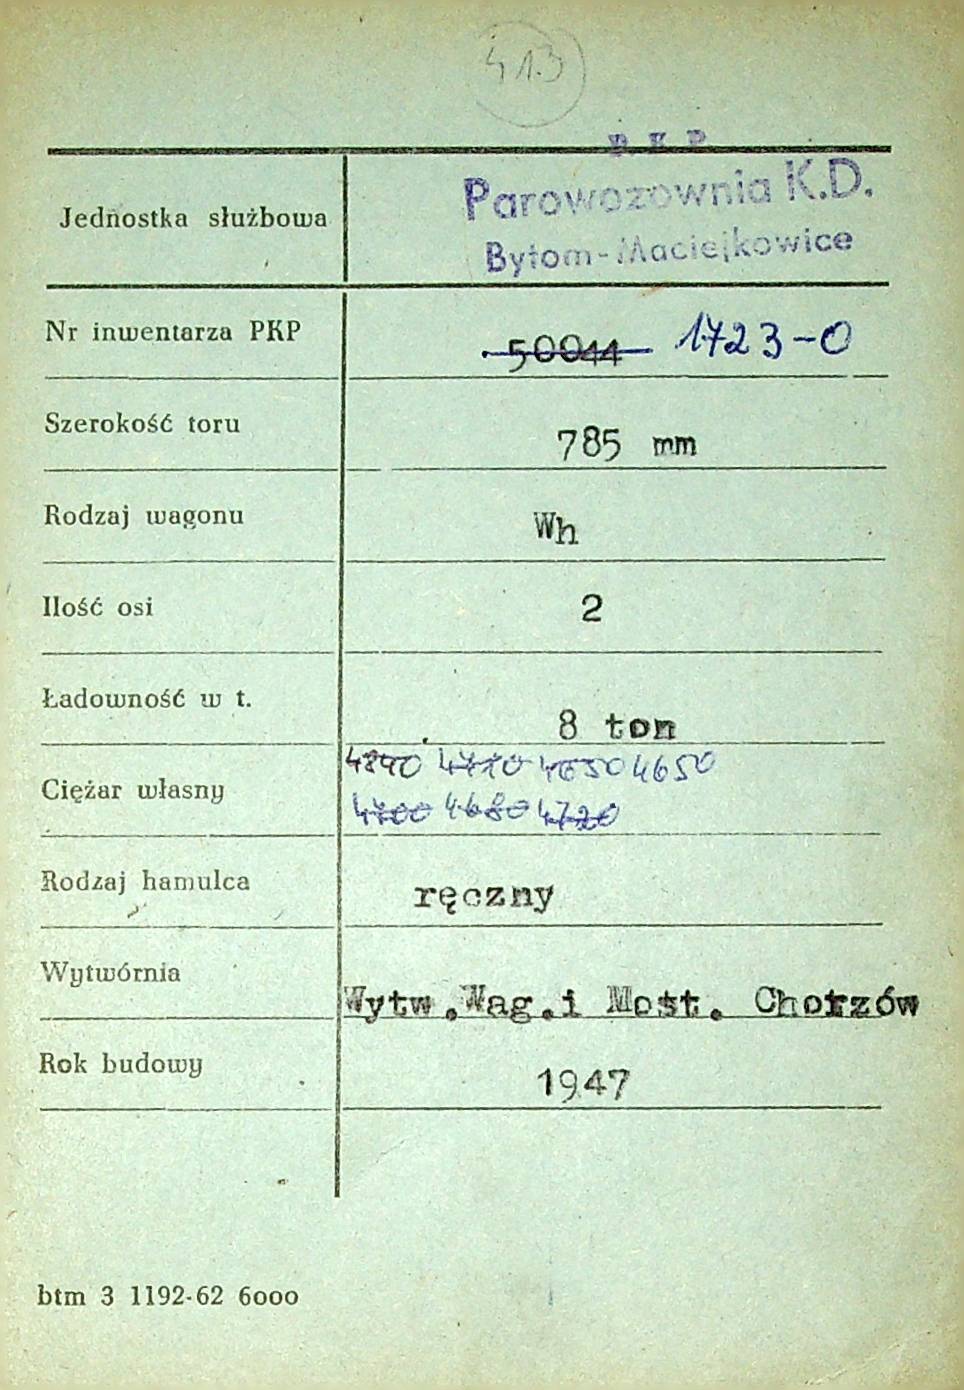 413
P.K.P
Parowozownia K.D.
Jednostka służbowa
Bytom-Maciejkowice
Nr inwentarza PKP 50044 1723-0
Szerokość toru 785 mm
Rodzaj wagonu Wh
Ilość osi 2
Ładowność w t. 8 ton
4840 4710 4650 4650
Ciężar własny
4700 4680 4720
Rodzaj hamulca ręczny
Wytwórnia Wytw.Wag.i Most. Chorzów
Rok budowy 1947
btm 3 1192-62 6000